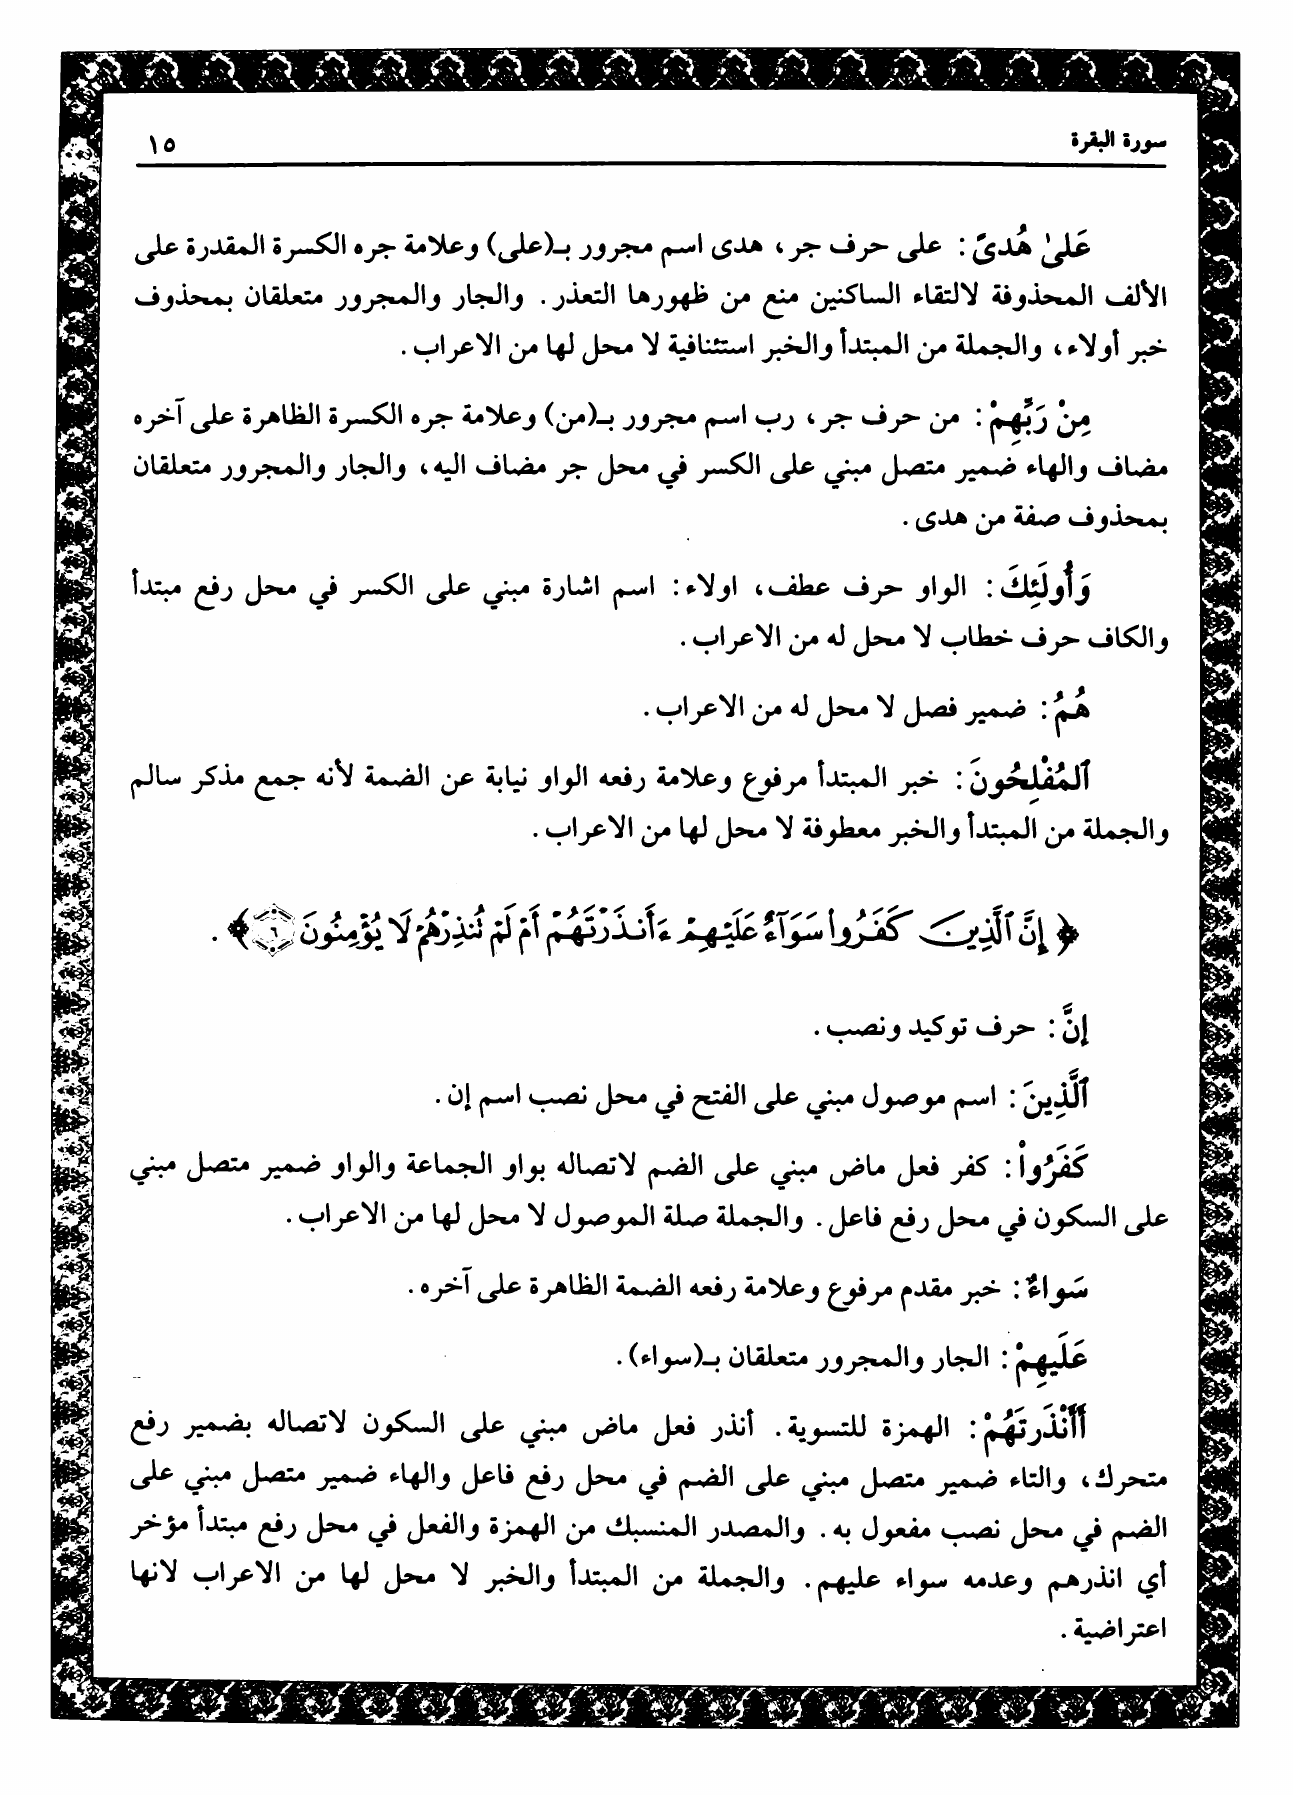 سورة البقرة ١٥
عَلىٰ هُدىً: على حرف جر، هدى اسم مجرور بـ(على) وعلامة جره الكسرة المقدرة على
الألف المحذوفة لالتقاء الساكنين منع من ظهورها التعذر. والجار والمجرور متعلقان بمحذوف
خبر أولاء، والجملة من المبتدأ والخبر استئنافية لا محل لها من الاعراب.
مِنْ رَبِّهِمْ: من حرف جر، رب اسم مجرور بـ(من) وعلامة جره الكسرة الظاهرة على آخره
مضاف والهاء ضمير متصل مبني على الكسر في محل جر مضاف اليه، والجار والمجرور متعلقان
بمحذوف صفة من هدى.
وَأُولَئِكَ: الواو حرف عطف، اولاء: اسم اشارة مبني على الكسر في محل رفع مبتدأ
والكاف حرف خطاب لا محل له من الاعراب.
هُمُ: ضمير فصل لا محل له من الاعراب.
ٱلمُفْلِحُونَ: خبر المبتدأ مرفوع وعلامة رفعه الواو نيابة عن الضمة لأنه جمع مذكر سالم
والجملة من المبتدأ والخبر معطوفة لا محل لها من الاعراب.
﴿إِنَّ ٱلَّذِينَ كَفَرُواْ سَوَآءٌ عَلَيْهِمْ ءَأَنذَرْتَهُمْ أَمْ لَمْ تُنذِرْهُمْ لَا يُؤْمِنُونَ ٦﴾.
إنَّ: حرف توكيد ونصب.
ٱلَّذِينَ: اسم موصول مبني على الفتح في محل نصب اسم إن.
كَفَرُواْ: كفر فعل ماض مبني على الضم لاتصاله بواو الجماعة والواو ضمير متصل مبني
على السكون في محل رفع فاعل. والجملة صلة الموصول لا محل لها من الاعراب.
سَواءٌ: خبر مقدم مرفوع وعلامة رفعه الضمة الظاهرة على آخره.
عَلَيهِمْ: الجار والمجرور متعلقان بـ(سواء).
أَأَنْذَرتَهُمْ: الهمزة للتسوية. أنذر فعل ماض مبني على السكون لاتصاله بضمير رفع
متحرك، والتاء ضمير متصل مبني على الضم في محل رفع فاعل والهاء ضمير متصل مبني على
الضم في محل نصب مفعول به. والمصدر المنسبك من الهمزة والفعل في محل رفع مبتدأ مؤخر
أي انذرهم وعدمه سواء عليهم. والجملة من المبتدأ والخبر لا محل لها من الاعراب لانها
اعتراضية.